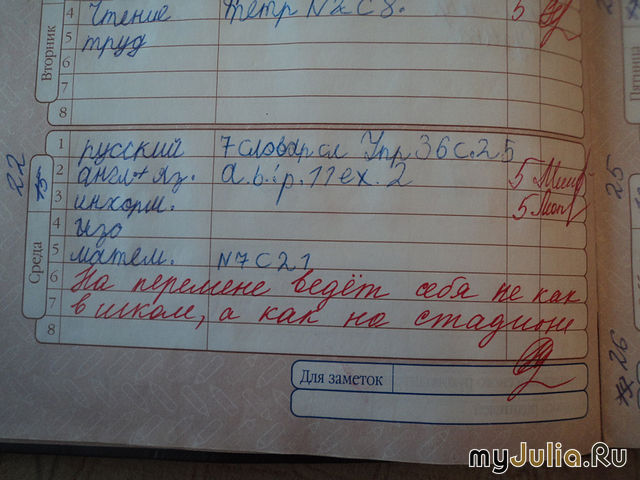 Вторник
4 Чтение тетр N2 С 8. 5
5 труд
6
7
8
22
Среда
1 русский 7 словар сл Упр 36 с. 25
2 англ. яз. a.b.: p. 11 ex. 2 5
3 инхорм. 5
4 изо
5 матем. N7 С 21
6 На перемене ведёт себя не как
7 в школе, а как на стадионе
8
Для заметок
Пятница
25
26
myJulia.Ru